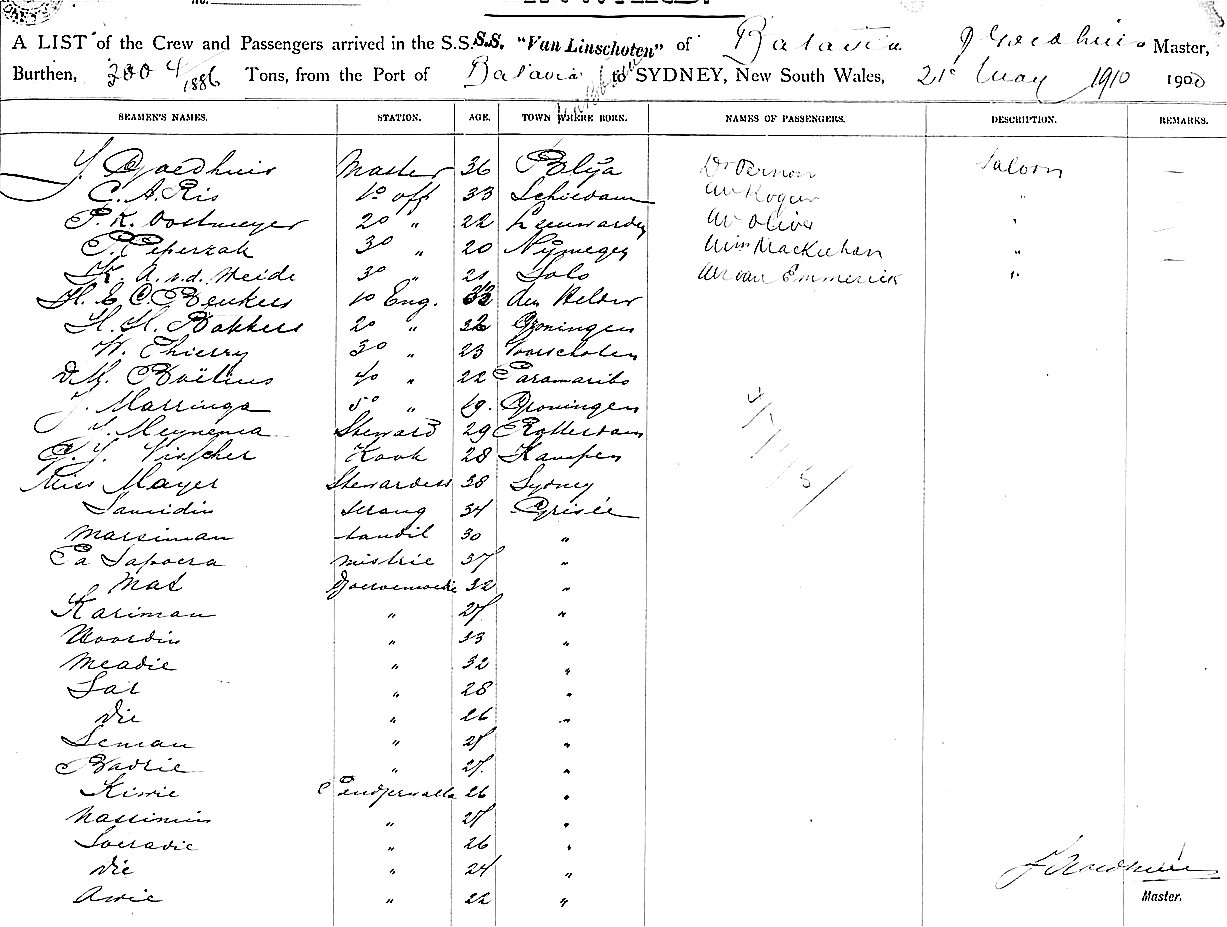 A LIST of the Crew and Passengers arrived in the S.S. S.S. "Van Linschoten" of Batavia J Goedhuis Master,
Burthen, Tons, from the Port of Batavia to SYDNEY, New South Wales, 21st May 1910 1900
SEAMEN'S NAMES. STATION. AGE. TOWN WHERE BORN. NAMES OF PASSENGERS. DESCRIPTION. REMARKS.
J. Goedhuis Master 36 Dr Vernon Saloon —
C. A. Ris 1o off 33 Schiedam Mr "
P. K. Oostmeyer 2o " 22 Leeuwarden Mr Oliver " —
P. Peperzak 3o " 20 Nijmegen Miss "
K. A. v.d. Heide 3o " 21 Solo Mr van Emmerick " —
H. E. C. Beukers 1o Eng. 33 den Helder
H. H. Bakkers 2o " 32 Groningen
W. Thierry 3o " 23 Voorschoten
4o " 22 Paramaribo
J. Marringa 5o " 19. Groningen
Steward 29 Rotterdam
G. J. Visscher Kook 28 Kampen
Miss Mayer Stewardess 38 Sydney
Samidin Serang 34 Grisée
Marsiman tandil 30 "
Pa Sapoera mistrie 37 "
Mat 32 "
Kariman " 27 "
Noordin " 33 "
Meadie " 32 "
Sar " 28 "
Die " 26 "
Leman " 27 "
Badrie " 27. "
Kirrie 26 "
Nassimin " 27 "
Soeradie " 26 "
Die " 24 "
Arrie " 22 "
J Goedhuis
Master.